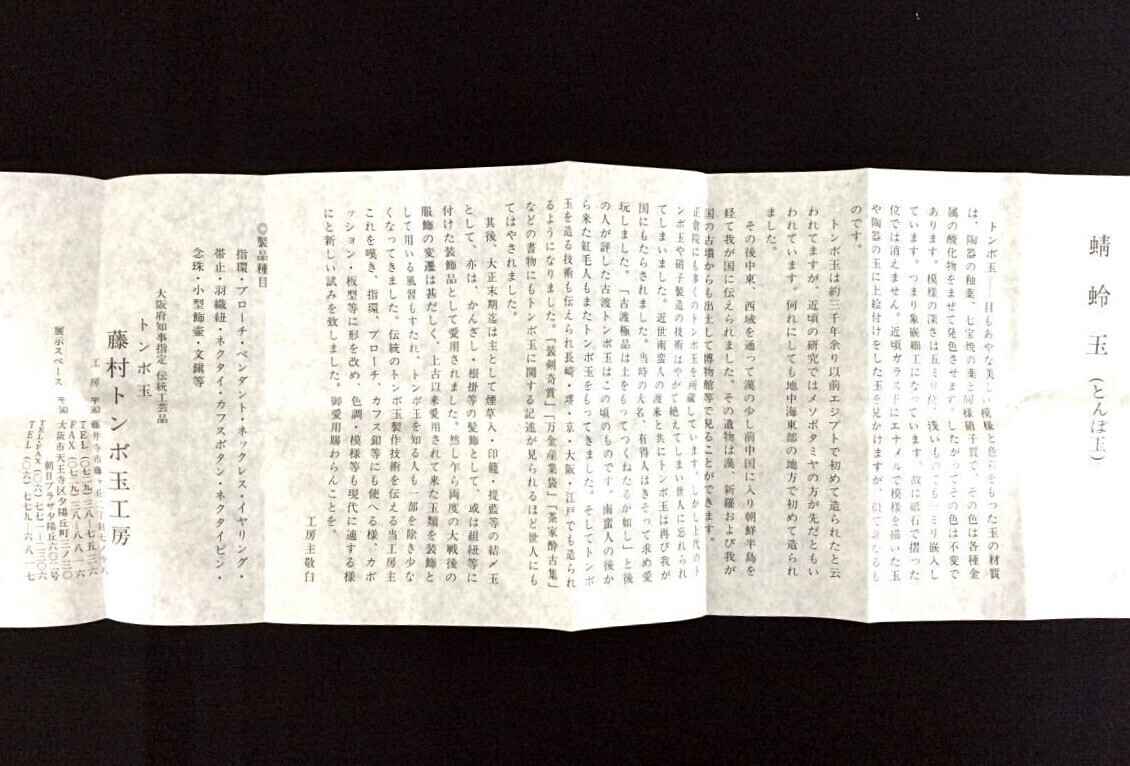 蜻蛉玉（とんぼ玉）
トンボ玉――目もあやな美しい模様と色彩をもった玉の材質
は、陶器の釉薬、七宝焼の薬と同様硝子質で、その色は各種金
属の酸化物をまぜて発色させます。したがってその色は不変で
あります。模様の深さは五ミリ位、浅いものでも一ミリ嵌入し
ています。つまり象嵌細工になっています。故に砥石で摺った
位では消えません。近頃ガラス玉にエナメルで模様を描いた玉
や陶器の玉に上絵付けをした玉を見かけますが、似て非なるも
のです。
トンボ玉は約三千年余り以前エジプトで初めて造られたと云
われてますが、近頃の研究ではメソポタミヤの方が先だともい
われています。何れにしても地中海東部の地方で初めて造られ
ました。
その後中東、西域を通って漢の少し前中国に入り朝鮮半島を
経て我が国に伝えられました。その遺物は漢、新羅および我が
国の古墳からも出土して博物館等で見ることができます。
正倉院にも多くのトンボ玉を所蔵しています。しかし上代のト
ンボ玉や硝子製造の技術はやがて絶えてしまい世人に忘れられ
てしまいました。近世南蛮人の渡来と共にトンボ玉は再び我が
国にもたらされました。当時の大名、有得人はきそって求め愛
玩しました。「古渡極品は土をもってつくねたるが如し」と後
の人が評した古渡トンボ玉はこの頃のものです。南蛮人の後か
ら来た紅毛人もまたトンボ玉をもってきました。そしてトンボ
玉を造る技術も伝えられ長崎・堺・京・大阪・江戸でも造られ
るようになりました。「装剣奇賞」「万金産業袋」「茶家酔古集」
などの書物にもトンボ玉に関する記述が見られるほど世人にも
てはやされました。
其後、大正末期迄は主として煙草入・印籠・提藍等の結〆玉
として、亦は、かんざし・根掛等の髪飾として、或は組紐等に
付けた装飾品として愛用されました。然し乍ら両度の大戦後の
服飾の変遷は甚だしく、上古以来愛用されて来た玉類を装飾と
して用いる風習もすたれ、トンボ玉を知る人も一部を除き少な
くなってきました。伝統のトンボ玉製作技術を伝える当工房主
これを嘆き、指環、ブローチ、カフス釦等にも使へる様、カボ
ッション・板型等に形を改め、色調・模様等も現代に適する様
にと新しい試みを致しました。御愛用賜わらんことを。
工房主敬白
◎製品種目
指環・ブローチ・ペンダント・ネックレス・イヤリング・
帯止・羽織紐・ネクタイ・カフスボタン・ネクタイピン・
念珠・小型飾壷・文鎮等
大阪府知事指定 伝統工芸品
トンボ玉
藤村トンボ玉工房
工房
TEL（〇七二九）三八―七五三六
FAX（〇七二九）三八―八八一六
展示スペース
大阪市天王寺区夕陽丘町三ノ三〇
朝日プラザ夕陽丘六〇二号
TEL・FAX（〇六）七七一―二三〇六
TEL（〇六）七七九―六八一七